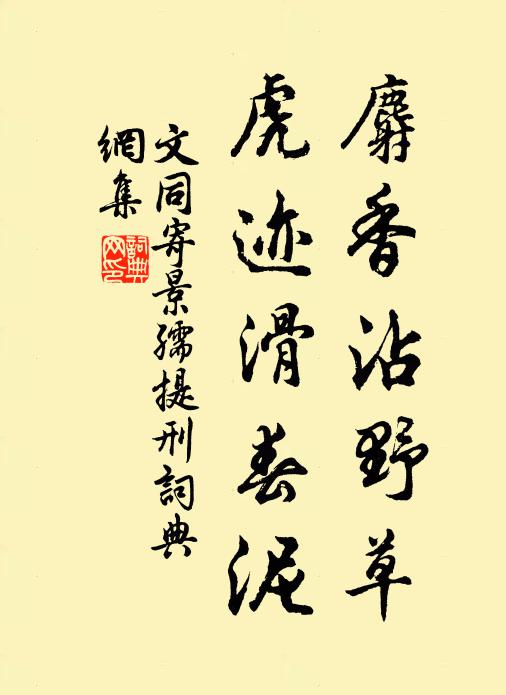 麝香沾野草
虎迹滑春泥
文同寄景孺提刑詞典
網集
詞典网印